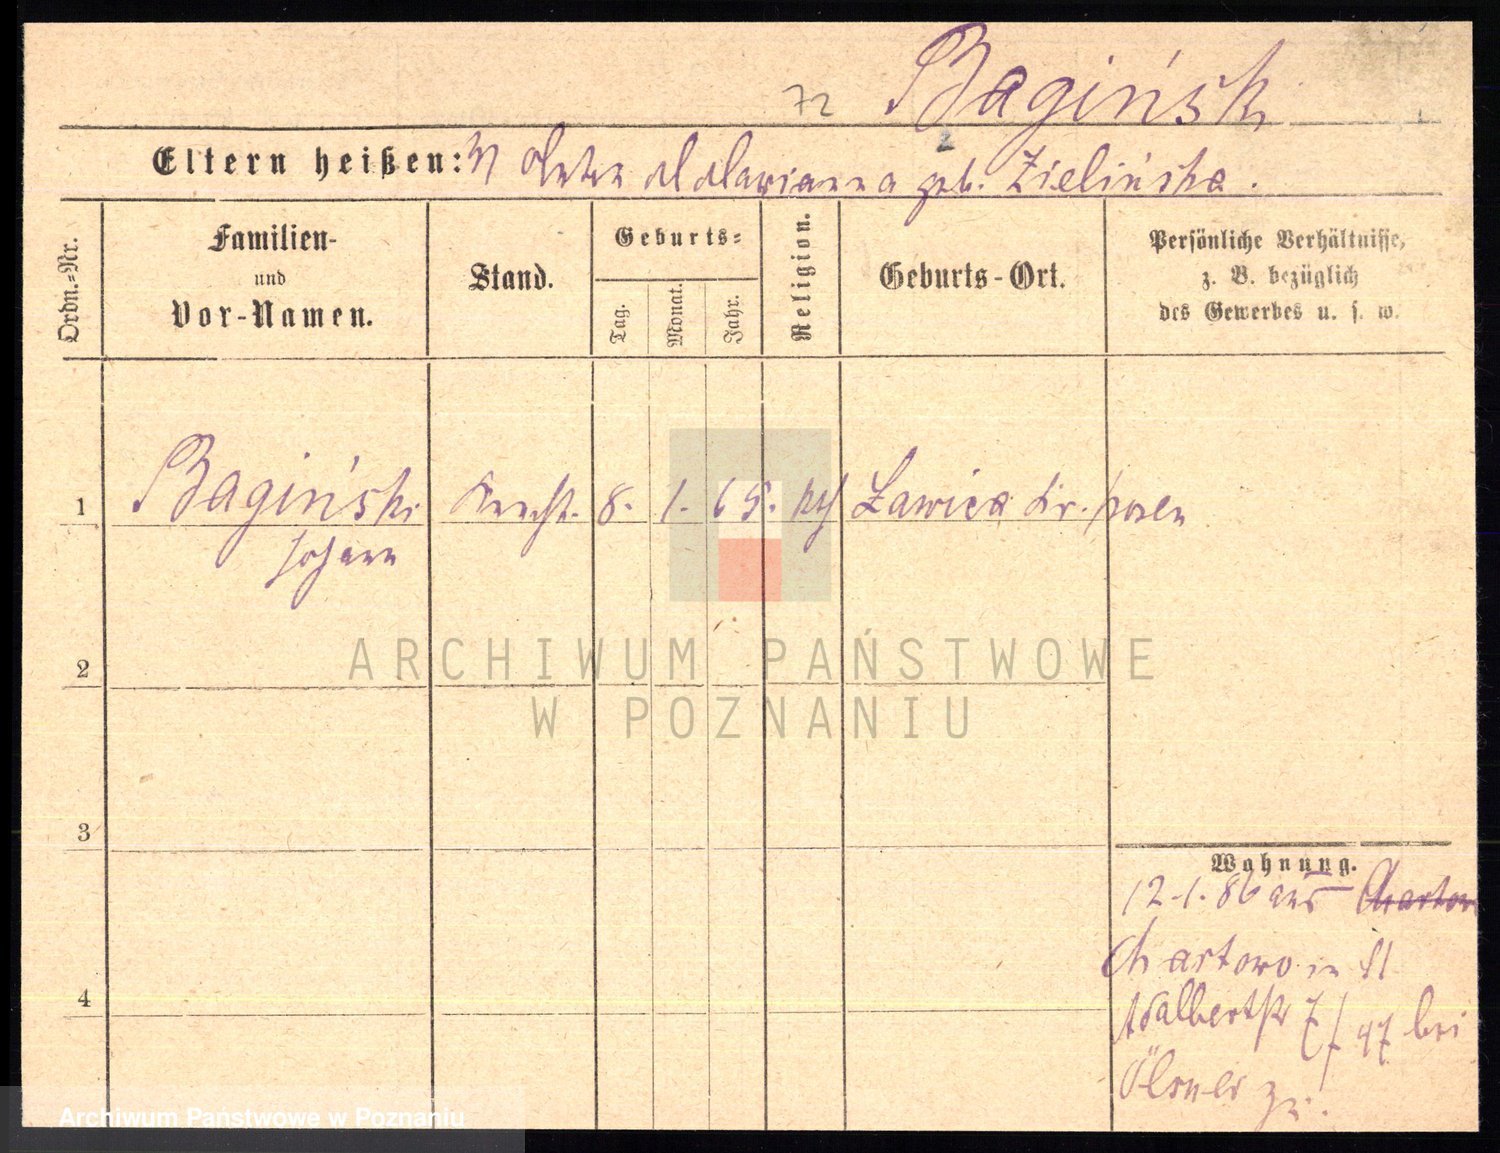 72 Bagiński
2
Eltern heißen: Marianna geb. Zielińska.
Ordn.-Nr.
Familien-
und
Vor-Namen.
Stand.
Geburts-
Tag.
Monat.
Jahr.
Religion.
Geburts-Ort.
Persönliche Verhältnisse,
z. B. bezüglich
des Gewerbes u. s. w.
1 Bagiński Knecht. 8. 1. 65. kth Ławica Kr. Posen
Johann
ARCHIWUM PAŃSTWOWE
W POZNANIU
2
3
4
Wohnung.
12.1.86 aus Chartow
Chartowo in St
Adalbertstr 7/ 47 bei
Ölsner zu.
Archiwum Państwowe w Poznaniu